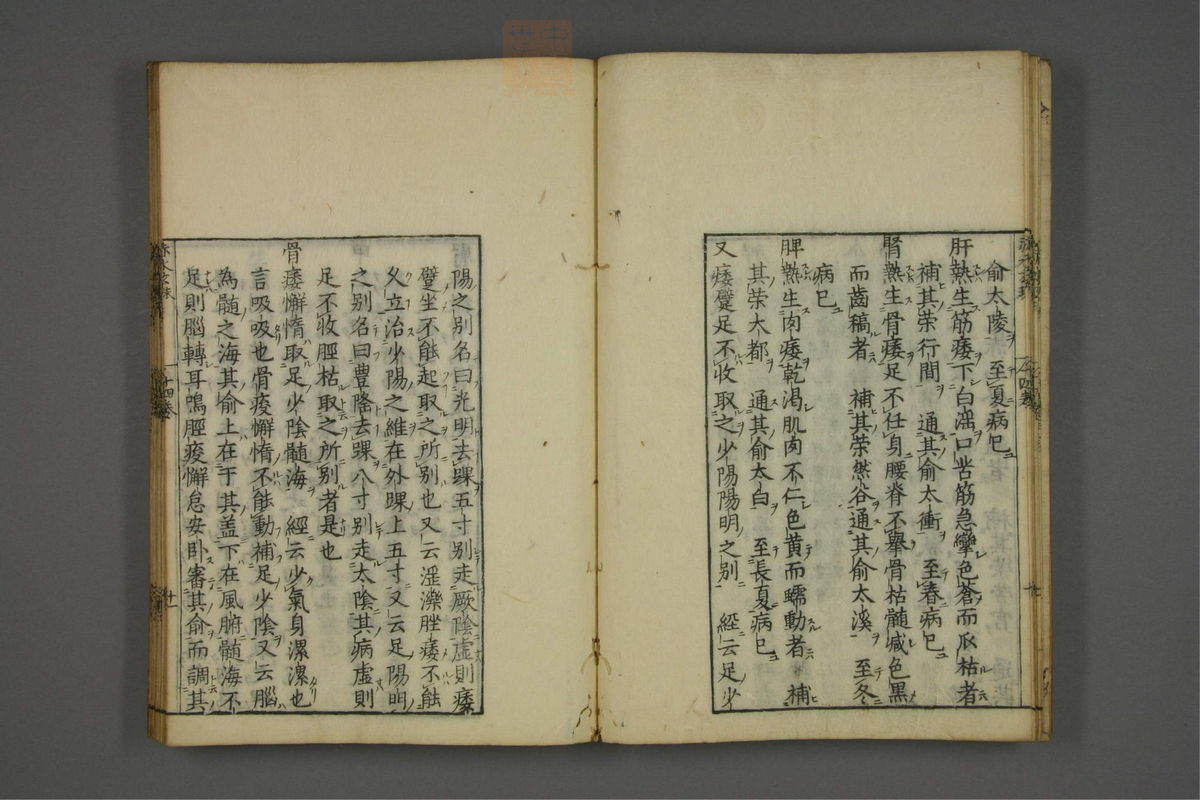 俞太陵 至夏病已
肝熱生筋痿下白淫口苦筋急攣色蒼而瓜枯者
補其荣行間 通其俞太衝 至春病已
腎熱生骨痿足不任身腰脊不擧骨枯髓减色黒
而齒稿者 補其荣然谷通其俞太溪 至冬
病已
脾熱生肉痿乾渇肌肉不仁色黄而蠕動者 補
其荣大都 通其俞太白 至長夏病已
又痿躄足不收取之少陽陽明之别 経云足少
陽之别名曰光明去踝五寸别走厥陰虚則痿
躄坐不能起取之所别也又云淫濼脛痿不能
久立治少陽之維在外踝上五寸又云足陽明
之别名曰豊隆去踝八寸别走太陰其病虚則
足不收脛枯取之所别者是也
骨痿懈惰取足少陰髓海 經云少氣身漯漯也
言吸吸也骨痠懈惰不能動補足少陰又云腦
為髓之海其俞上在于其盖下在風腑髓海不
足則腦轉耳鳴脛痠懈怠安卧審其俞而調其
十四巻
十一